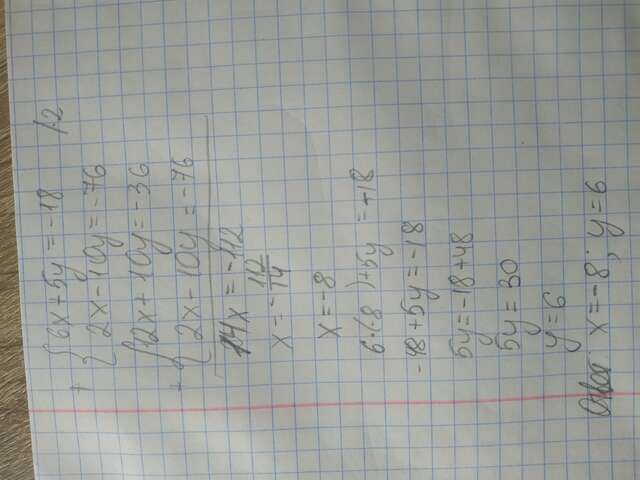 {6x+5y=-18 /·2
+ {2x-10y=-76
{12x+10y=-36
+ {2x-10y=-76
14x=-112
x=-112/14
x=-8
6·(-8)+5y=-18
-48+5y=-18
5y=-18+48
5y=30
y=6
x=-8; y=6